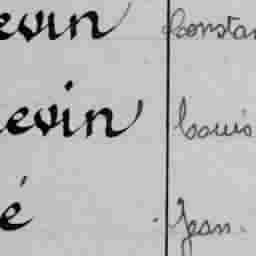 evin Constan
evin Louis
é Jean.